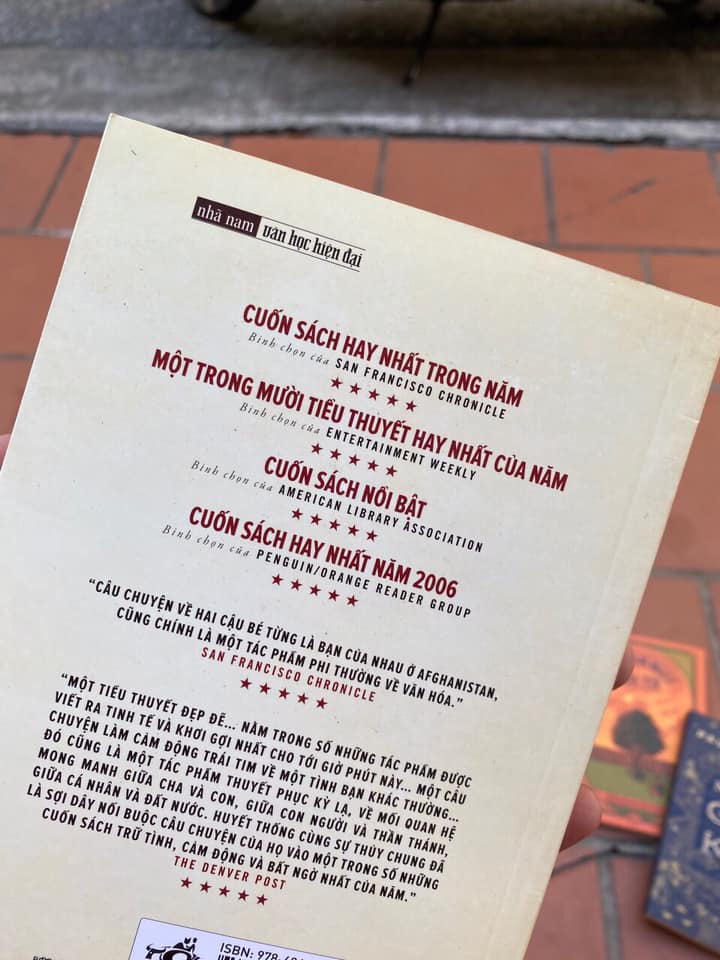 nhã nam văn học hiện đại
CUỐN SÁCH HAY NHẤT TRONG NĂM
Bình chọn của SAN FRANCISCO CHRONICLE
★★★★★
MỘT TRONG MƯỜI TIỂU THUYẾT HAY NHẤT CỦA NĂM
Bình chọn của ENTERTAINMENT WEEKLY
★★★★★
CUỐN SÁCH NỔI BẬT
Bình chọn của AMERICAN LIBRARY ASSOCIATION
★★★★★
CUỐN SÁCH HAY NHẤT NĂM 2006
Bình chọn của PENGUIN/ORANGE READER GROUP
★★★★★
“CÂU CHUYỆN VỀ HAI CẬU BÉ TỪNG LÀ BẠN CỦA NHAU Ở AFGHANISTAN,
CŨNG CHÍNH LÀ MỘT TÁC PHẨM PHI THƯỜNG VỀ VĂN HÓA.”
SAN FRANCISCO CHRONICLE
★★★★★
“MỘT TIỂU THUYẾT ĐẸP ĐẼ... NẰM TRONG SỐ NHỮNG TÁC PHẨM ĐƯỢC
VIẾT RA TINH TẾ VÀ KHƠI GỢI NHẤT CHO TỚI GIỜ PHÚT NÀY... MỘT CÂU
CHUYỆN LÀM CẢM ĐỘNG TRÁI TIM VỀ MỘT TÌNH BẠN KHÁC THƯỜNG...
ĐÓ CŨNG LÀ MỘT TÁC PHẨM THUYẾT PHỤC KỲ LẠ, VỀ MỐI QUAN HỆ
MONG MANH GIỮA CHA VÀ CON, GIỮA CON NGƯỜI VÀ THẦN THÁNH,
GIỮA CÁ NHÂN VÀ ĐẤT NƯỚC. HUYẾT THỐNG CÙNG SỰ THỦY CHUNG ĐÃ
LÀ SỢI DÂY NỐI BUỘC CÂU CHUYỆN CỦA HỌ VÀO MỘT TRONG SỐ NHỮNG
CUỐN SÁCH TRỮ TÌNH, CẢM ĐỘNG VÀ BẤT NGỜ NHẤT CỦA NĂM.”
THE DENVER POST
★★★★★
ISBN: 978-